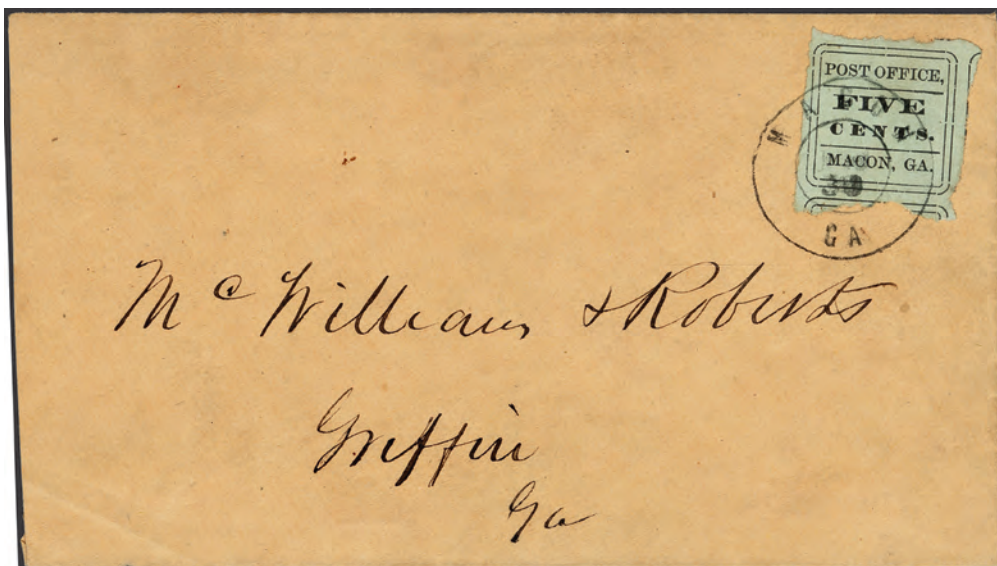 POST OFFICE,
FIVE
CENTS.
MACON, GA.
MACON
30
GA
Mc Williams & Roberts
Griffin
Ga